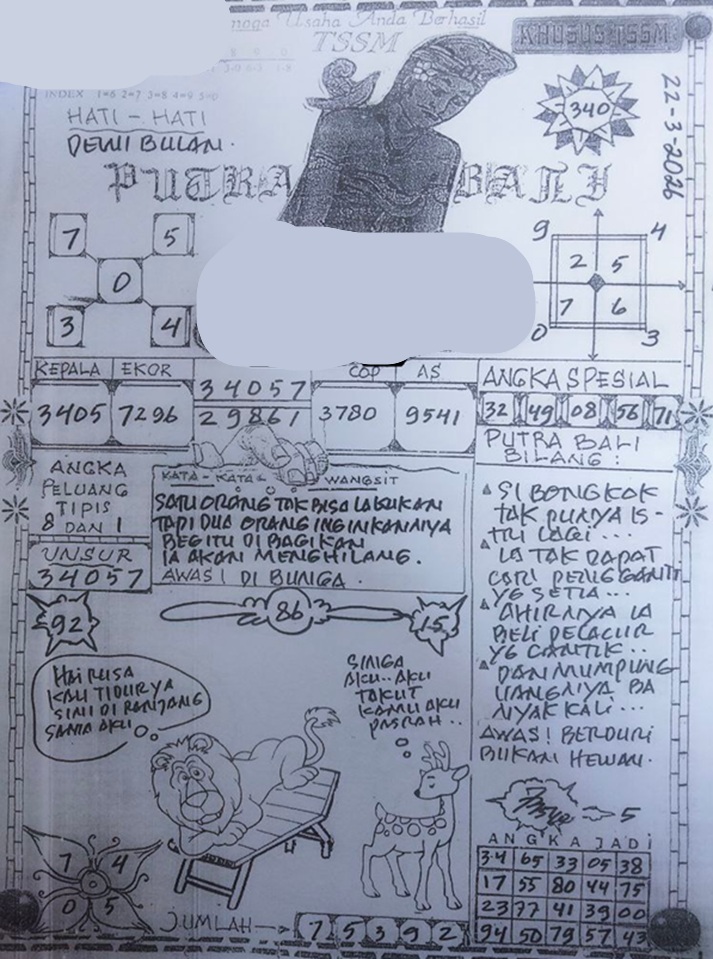 noga Usaha Anda Berhasil
TSSM
KHUSUS TSSM
8 9 0
INDEX 1=6 2=7 3=8 4=9 5=0
HATI - HATI
DEWI BULAN.
340
22-3-2026
PUTRA BALI
7 5
0
3 4
9 4
2 5
7 6
0 3
KEPALA EKOR
3405 7296
34057
29861
COP AS
3780 9541
ANGKA SPESIAL
32 49 08 56 71
ANGKA
PELUANG
TIPIS
8 DAN 1
UNSUR
34057
KATA - KATA = WANGSIT
SATU ORANG TAK BISA LAKUKAN
TAPI DUA ORANG INGINKANNYA
BEGITU DI BAGIKAN
IA AKAN MENGHILANG.
AWAS! DI BUNGA.
PUTRA BALI
BILANG:
SI BONGKOK
TAK PUNYA IS-
TRI LAGI...
IA TAK DAPAT
CARI PENGGANTI
YG SETIA...
AHIRNYA IA
BELI PELACUR
YG CANTIK..
DAN MUMPUNG
UANGNYA BA
NYAK KALI...
AWAS! BERDURI
BUKAN HEWAN.
92
86
15
HAI RUSA
KAU TIDUR YA
SINI DI RANJANG
SAMA AKU
SINGA
AKU.. AKU
TAKUT
KAMU AKU
PASRAH..
7 4
0 5
JUMLAH
7 5 3 9 2
5
ANGKA JADI
34 65 33 05 38
17 55 80 44 75
23 77 41 39 00
94 50 79 57 43